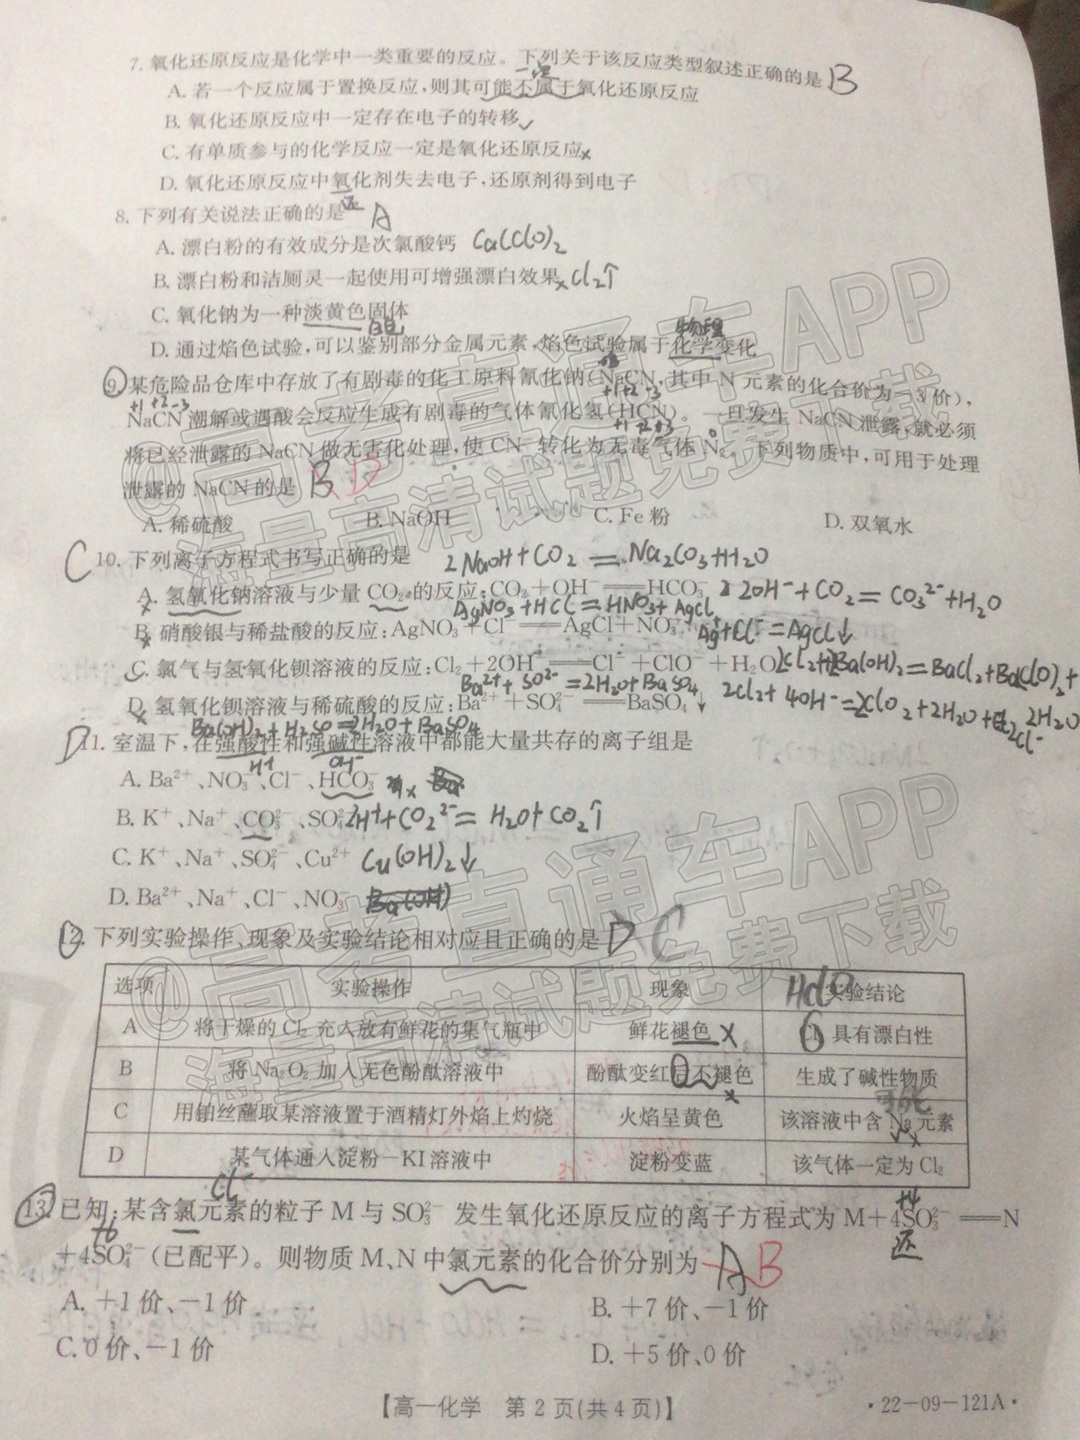 7. 氧化还原反应是化学中一类重要的反应。下列关于该反应类型叙述正确的是 B
A. 若一个反应属于置换反应,则其可能不属于氧化还原反应
一定
B. 氧化还原反应中一定存在电子的转移 ✓
C. 有单质参与的化学反应一定是氧化还原反应 x
D. 氧化还原反应中氧化剂失去电子,还原剂得到电子
还
8. 下列有关说法正确的是 A
A. 漂白粉的有效成分是次氯酸钙 Ca(ClO)₂
B. 漂白粉和洁厕灵一起使用可增强漂白效果 x Cl₂↑
C. 氧化钠为一种淡黄色固体
白色
物理
D. 通过焰色试验,可以鉴别部分金属元素,焰色试验属于化学变化
9. 某危险品仓库中存放了有剧毒的化工原料氰化钠(NaCN,其中 N 元素的化合价为-3价),
+1+2-3
+1+2-3
NaCN 潮解或遇酸会反应生成有剧毒的气体氰化氢(HCN)。一旦发生 NaCN 泄露,就必须
+1+2-3
将已经泄露的 NaCN 做无害化处理,使 CN⁻ 转化为无毒气体 N₂。下列物质中,可用于处理
泄露的 NaCN 的是 B D
A. 稀硫酸 B. NaOH C. Fe 粉 D. 双氧水
C 10. 下列离子方程式书写正确的是 2NaOH+CO₂=Na₂CO₃+H₂O
A. 氢氧化钠溶液与少量 CO₂ 的反应:CO₂+OH⁻══HCO₃⁻ 2OH⁻+CO₂=CO₃²⁻+H₂O
x
AgNO₃+HCl=HNO₃+AgCl
B. 硝酸银与稀盐酸的反应:AgNO₃+Cl⁻══AgCl+NO₃⁻ Ag⁺+Cl⁻=AgCl↓
x
C. 氯气与氢氧化钡溶液的反应:Cl₂+2OH⁻══Cl⁻+ClO⁻+H₂O 2Cl₂+2Ba(OH)₂=BaCl₂+Ba(ClO)₂+
2H₂O
Ba²⁺+SO²⁻=2H₂O+BaSO₄
D. 氢氧化钡溶液与稀硫酸的反应:Ba²⁺+SO₄²⁻══BaSO₄↓
x
Ba(OH)₂+H₂SO=2H₂O+BaSO₄
D 11. 室温下,在强酸性和强碱性溶液中都能大量共存的离子组是
H⁺ OH⁻
A. Ba²⁺、NO₃⁻、Cl⁻、HCO₃⁻ x
B. K⁺、Na⁺、CO₃²⁻、SO₄²⁻ 2H⁺+CO₂²⁻=H₂O+CO₂↑
C. K⁺、Na⁺、SO₄²⁻、Cu²⁺ Cu(OH)₂↓
D. Ba²⁺、Na⁺、Cl⁻、NO₃⁻ Ba(OH)
12. 下列实验操作、现象及实验结论相对应且正确的是 D C
选项 实验操作 现象 实验结论
HClO
A 将干燥的 Cl₂ 充入放有鲜花的集气瓶中 鲜花褪色 x 具有漂白性
B 将 Na₂O₂ 加入无色酚酞溶液中 酚酞变红且不褪色 生成了碱性物质
x
C 用铂丝蘸取某溶液置于酒精灯外焰上灼烧 火焰呈黄色 该溶液中含 Na 元素
D 某气体通入淀粉-KI 溶液中 淀粉变蓝 该气体一定为 Cl₂
Cl
+4
13. 已知:某含氯元素的粒子 M 与 SO₃²⁻ 发生氧化还原反应的离子方程式为 M+4SO₃²⁻══N
还
+6
+4SO₄²⁻(已配平)。则物质 M、N 中氯元素的化合价分别为 A B
A. +1 价、-1 价 B. +7 价、-1 价
C. 0 价、-1 价 D. +5 价、0 价
【高一化学 第 2 页(共 4 页)】 ·22-09-121A·
@高考直通车APP
海量高清试题免费下载
@高考直通车APP
海量高清试题免费下载